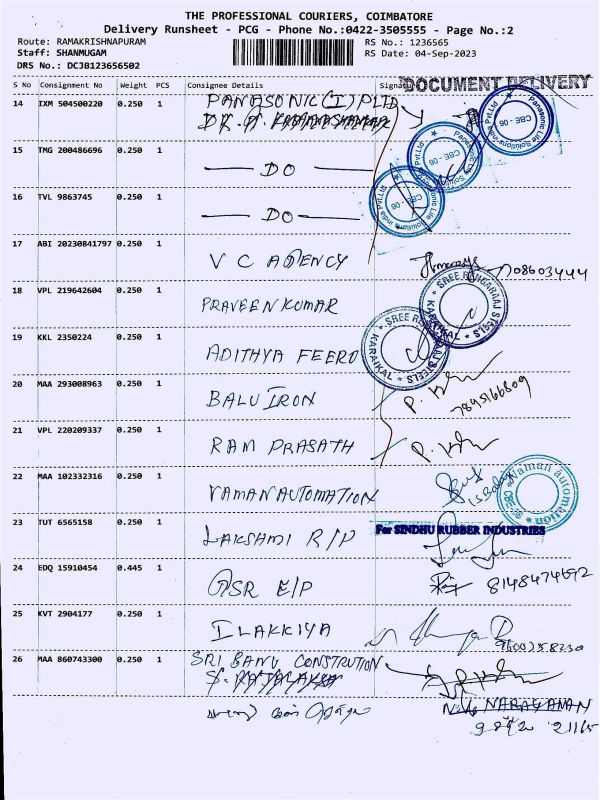 THE PROFESSIONAL COURIERS, COIMBATORE
Delivery Runsheet - PCG - Phone No.:0422-3505555 - Page No.:2
Route: RAMAKRISHNAPURAM RS No.: 1236565
Staff: SHANMUGAM RS Date: 04-Sep-2023
DRS No.: DCJB123656502
S No Consignment No Weight PCS Consignee Details Signa
DOCUMENT DELIVERY
14 IXM 504500220 0.250 1 PANASONIC(I)P LTD
15 TMG 200486696 0.250 1 — DO —
16 TVL 9863745 0.250 1 — DO —
Panasonic Life Solutions India Pvt.Ltd CBE - 06
Panasonic Life Solutions India Pvt.Ltd CBE - 06
Panasonic Life Solutions India Pvt.Ltd CBE - 06
17 ABI 20230841797 0.250 1 V C AGENCY
18 VPL 219642604 0.250 1 PRAVEEN KUMAR
SREE RANGARAAJ STEELS KARAIKAL
19 KKL 2350224 0.250 1 ADITHYA FEERO
SREE STEELS KARAIKAL
20 MAA 293008963 0.250 1 BALU IRON
21 VPL 220209337 0.250 1 RAM PRASATH
22 MAA 102332316 0.250 1 VAMAN AUTOMATION
Vaman automation CBE
23 TUT 6565158 0.250 1 LAKSHMI R/P
For SINDHU RUBBER INDUSTRIES
24 EDQ 15910454 0.445 1 ASR E/P 8148474692
25 KVT 2904177 0.250 1 ILAKKIYA
26 MAA 860743300 0.250 1 SRI BANU CONSTRUTION
NARAYANAN